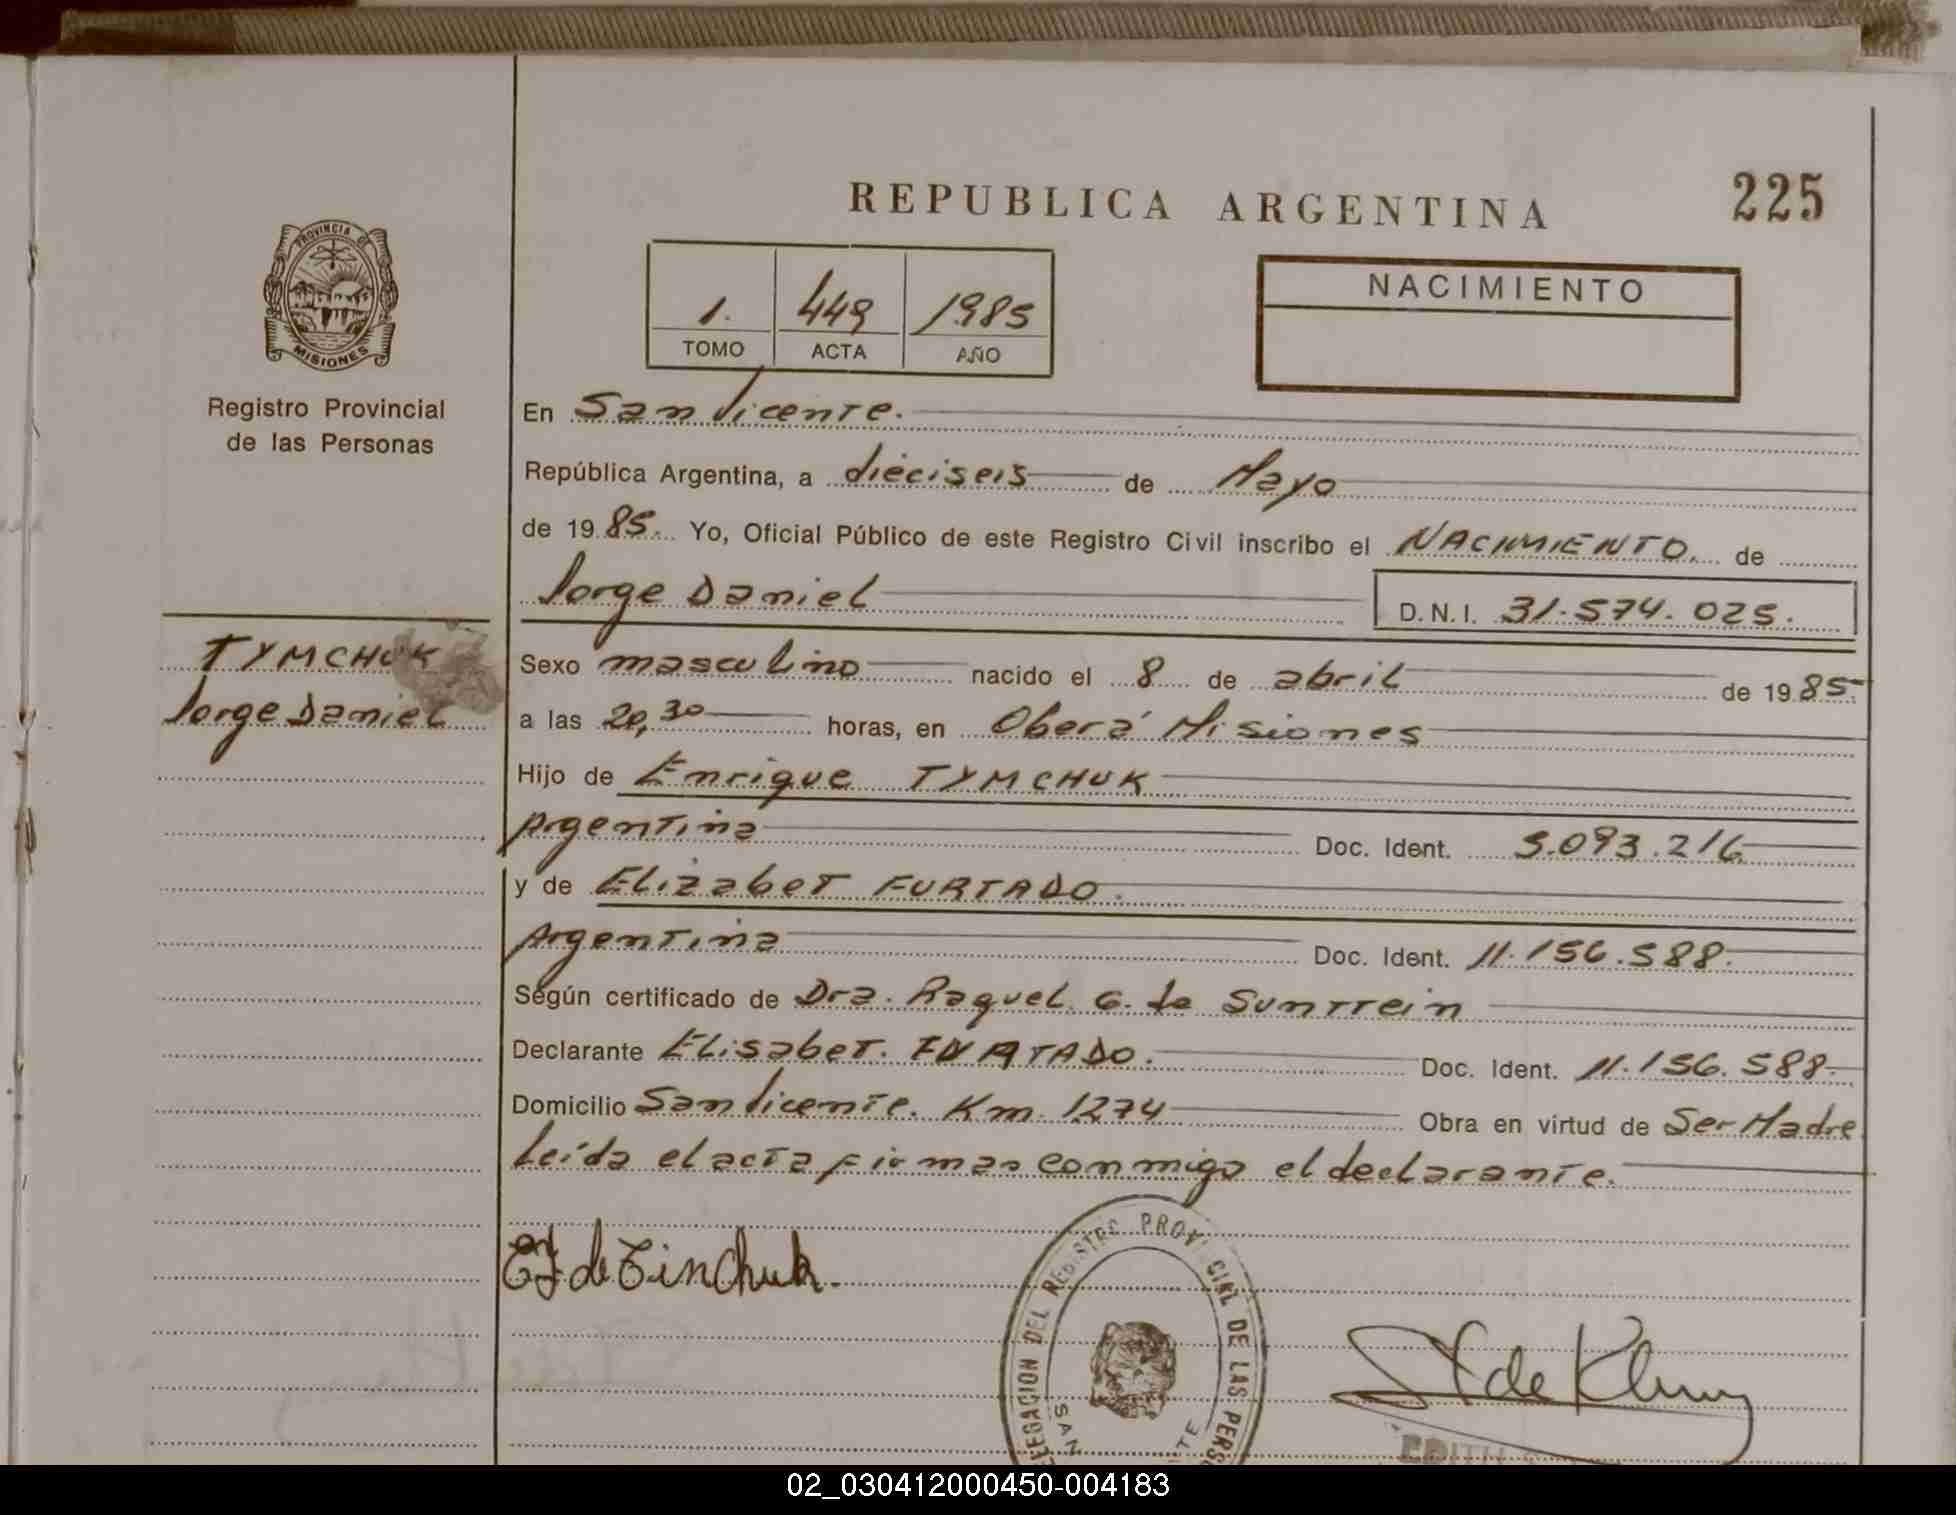 REPUBLICA ARGENTINA
225
PROVINCIA DE
MISIONES
Registro Provincial
de las Personas
1. 449 1985
TOMO ACTA AÑO
NACIMIENTO
En San Vicente.
República Argentina, a dieciseis de Mayo
de 1985. Yo, Oficial Público de este Registro Civil inscribo el NACIMIENTO. de
Jorge Daniel D.N.I. 31.574.025.
TYMCHUK
Jorge Daniel
Sexo masculino nacido el 8 de abril de 1985.
a las 20,30 horas, en Oberá Misiones
Hijo de Enrique TYMCHUK
Argentina Doc. Ident. 5.093.216
y de Elizabet FURTADO.
Argentina Doc. Ident. 11.156.588.
Según certificado de Dra. Raquel G. de Suntrein
Declarante Elisabet. FURTADO. Doc. Ident. 11.156.588.
Domicilio San Vicente. Km. 1274 Obra en virtud de Ser Madre
Leída el acta firman conmigo el declarante.
EF de Tinchuk.
DELEGACION DEL REGISTRO PROVINCIAL DE LAS PERS
SAN TE
de
EDITH
02_030412000450-004183